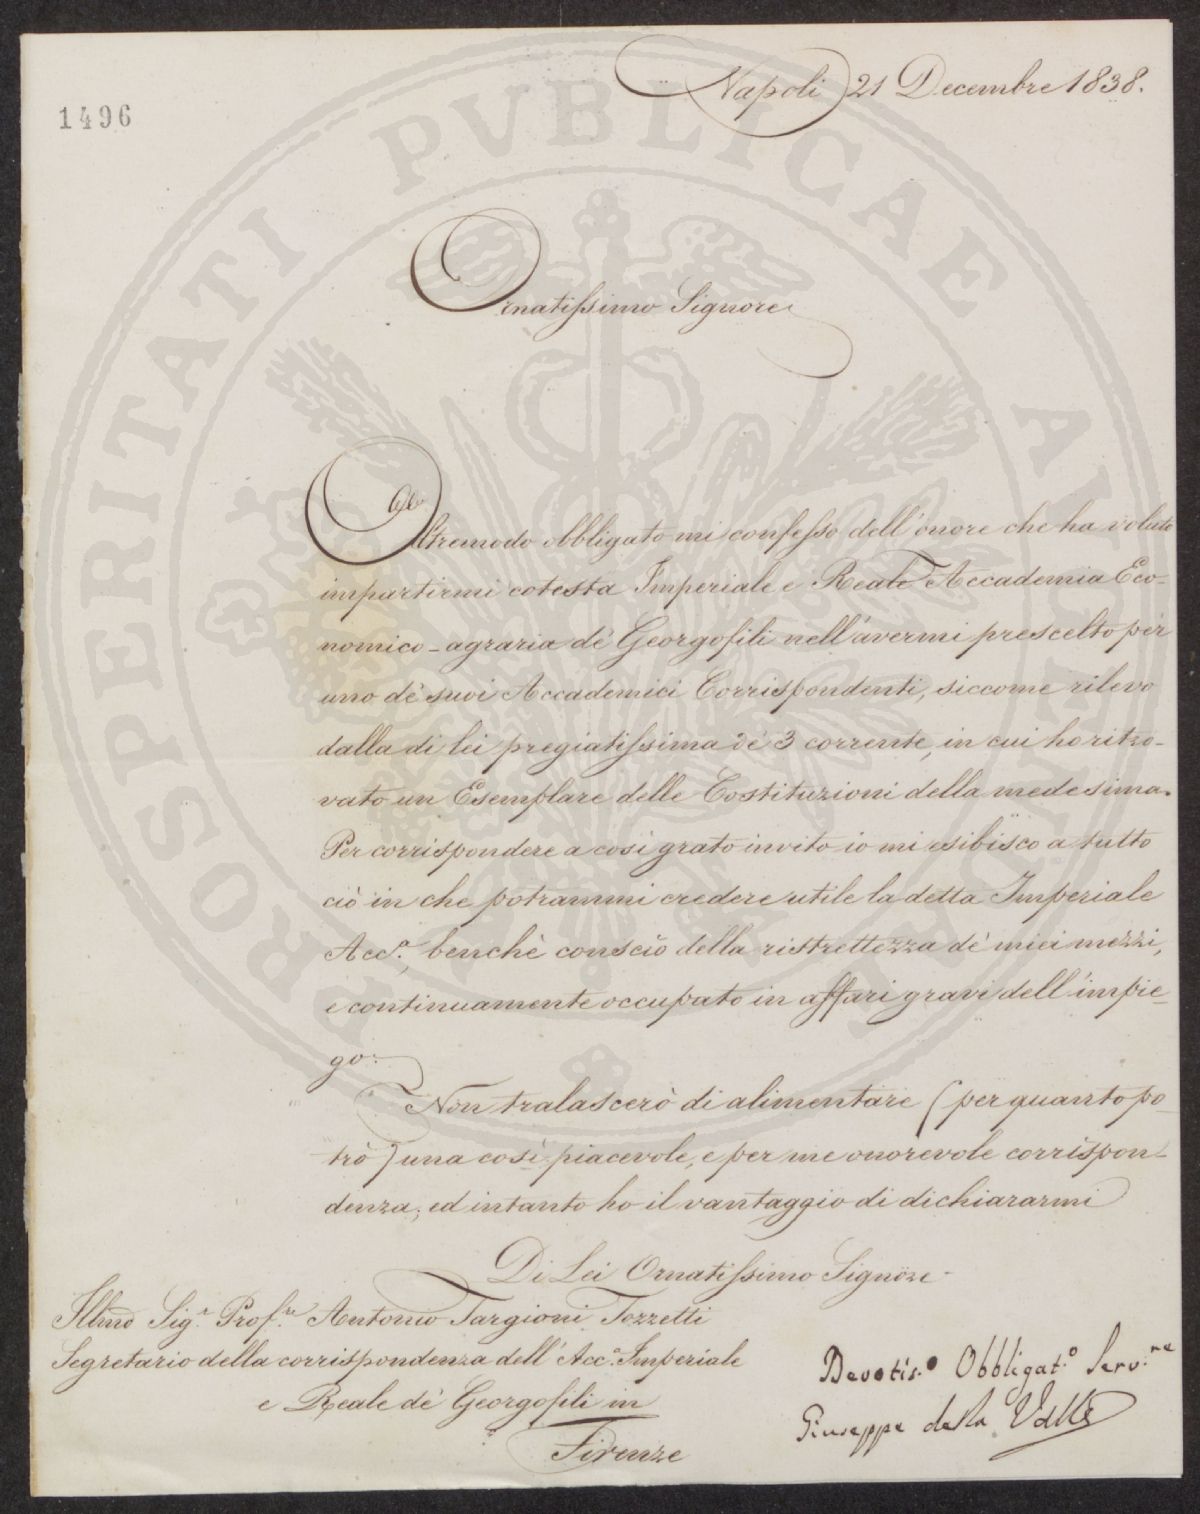 1496
Napoli 21 Decembre 1838.
Ornatissimo Signore
Oltremodo obbligato mi confesso dell'onore che ha voluto
impartirmi cotesta Imperiale e Reale Accademia Eco-
nomico-agraria de' Georgofili nell'avermi prescelto per
uno de' suoi Accademici Corrispondenti, siccome rilevo
dalla di lei pregiatissima de' 3 corrente, in cui ho ritro-
vato un Esemplare delle Costituzioni della medesima.
Per corrispondere a così grato invito io mi esibisco a tutto
ciò in che potrammi credere utile la detta Imperiale
Acc.a, benchè conscio della ristrettezza de' miei mezzi,
e continuamente occupato in affari gravi dell'impie-
go.
Non tralascerò di alimentare (per quanto po-
trò) una così piacevole, e per me onorevole corrispon-
denza; ed intanto ho il vantaggio di dichiararmi
Di Lei Ornatissimo Signore
Illmo Sig.r Prof.re Antonio Targioni Tozzetti
Segretario della corrispondenza dell'Acc.a Imperiale
e Reale de' Georgofili in
Firenze
Devotis.o Obbligat.o Serv.re
Giuseppe della Valle
PROSPERITATI PVBLICAE AVGENDAE